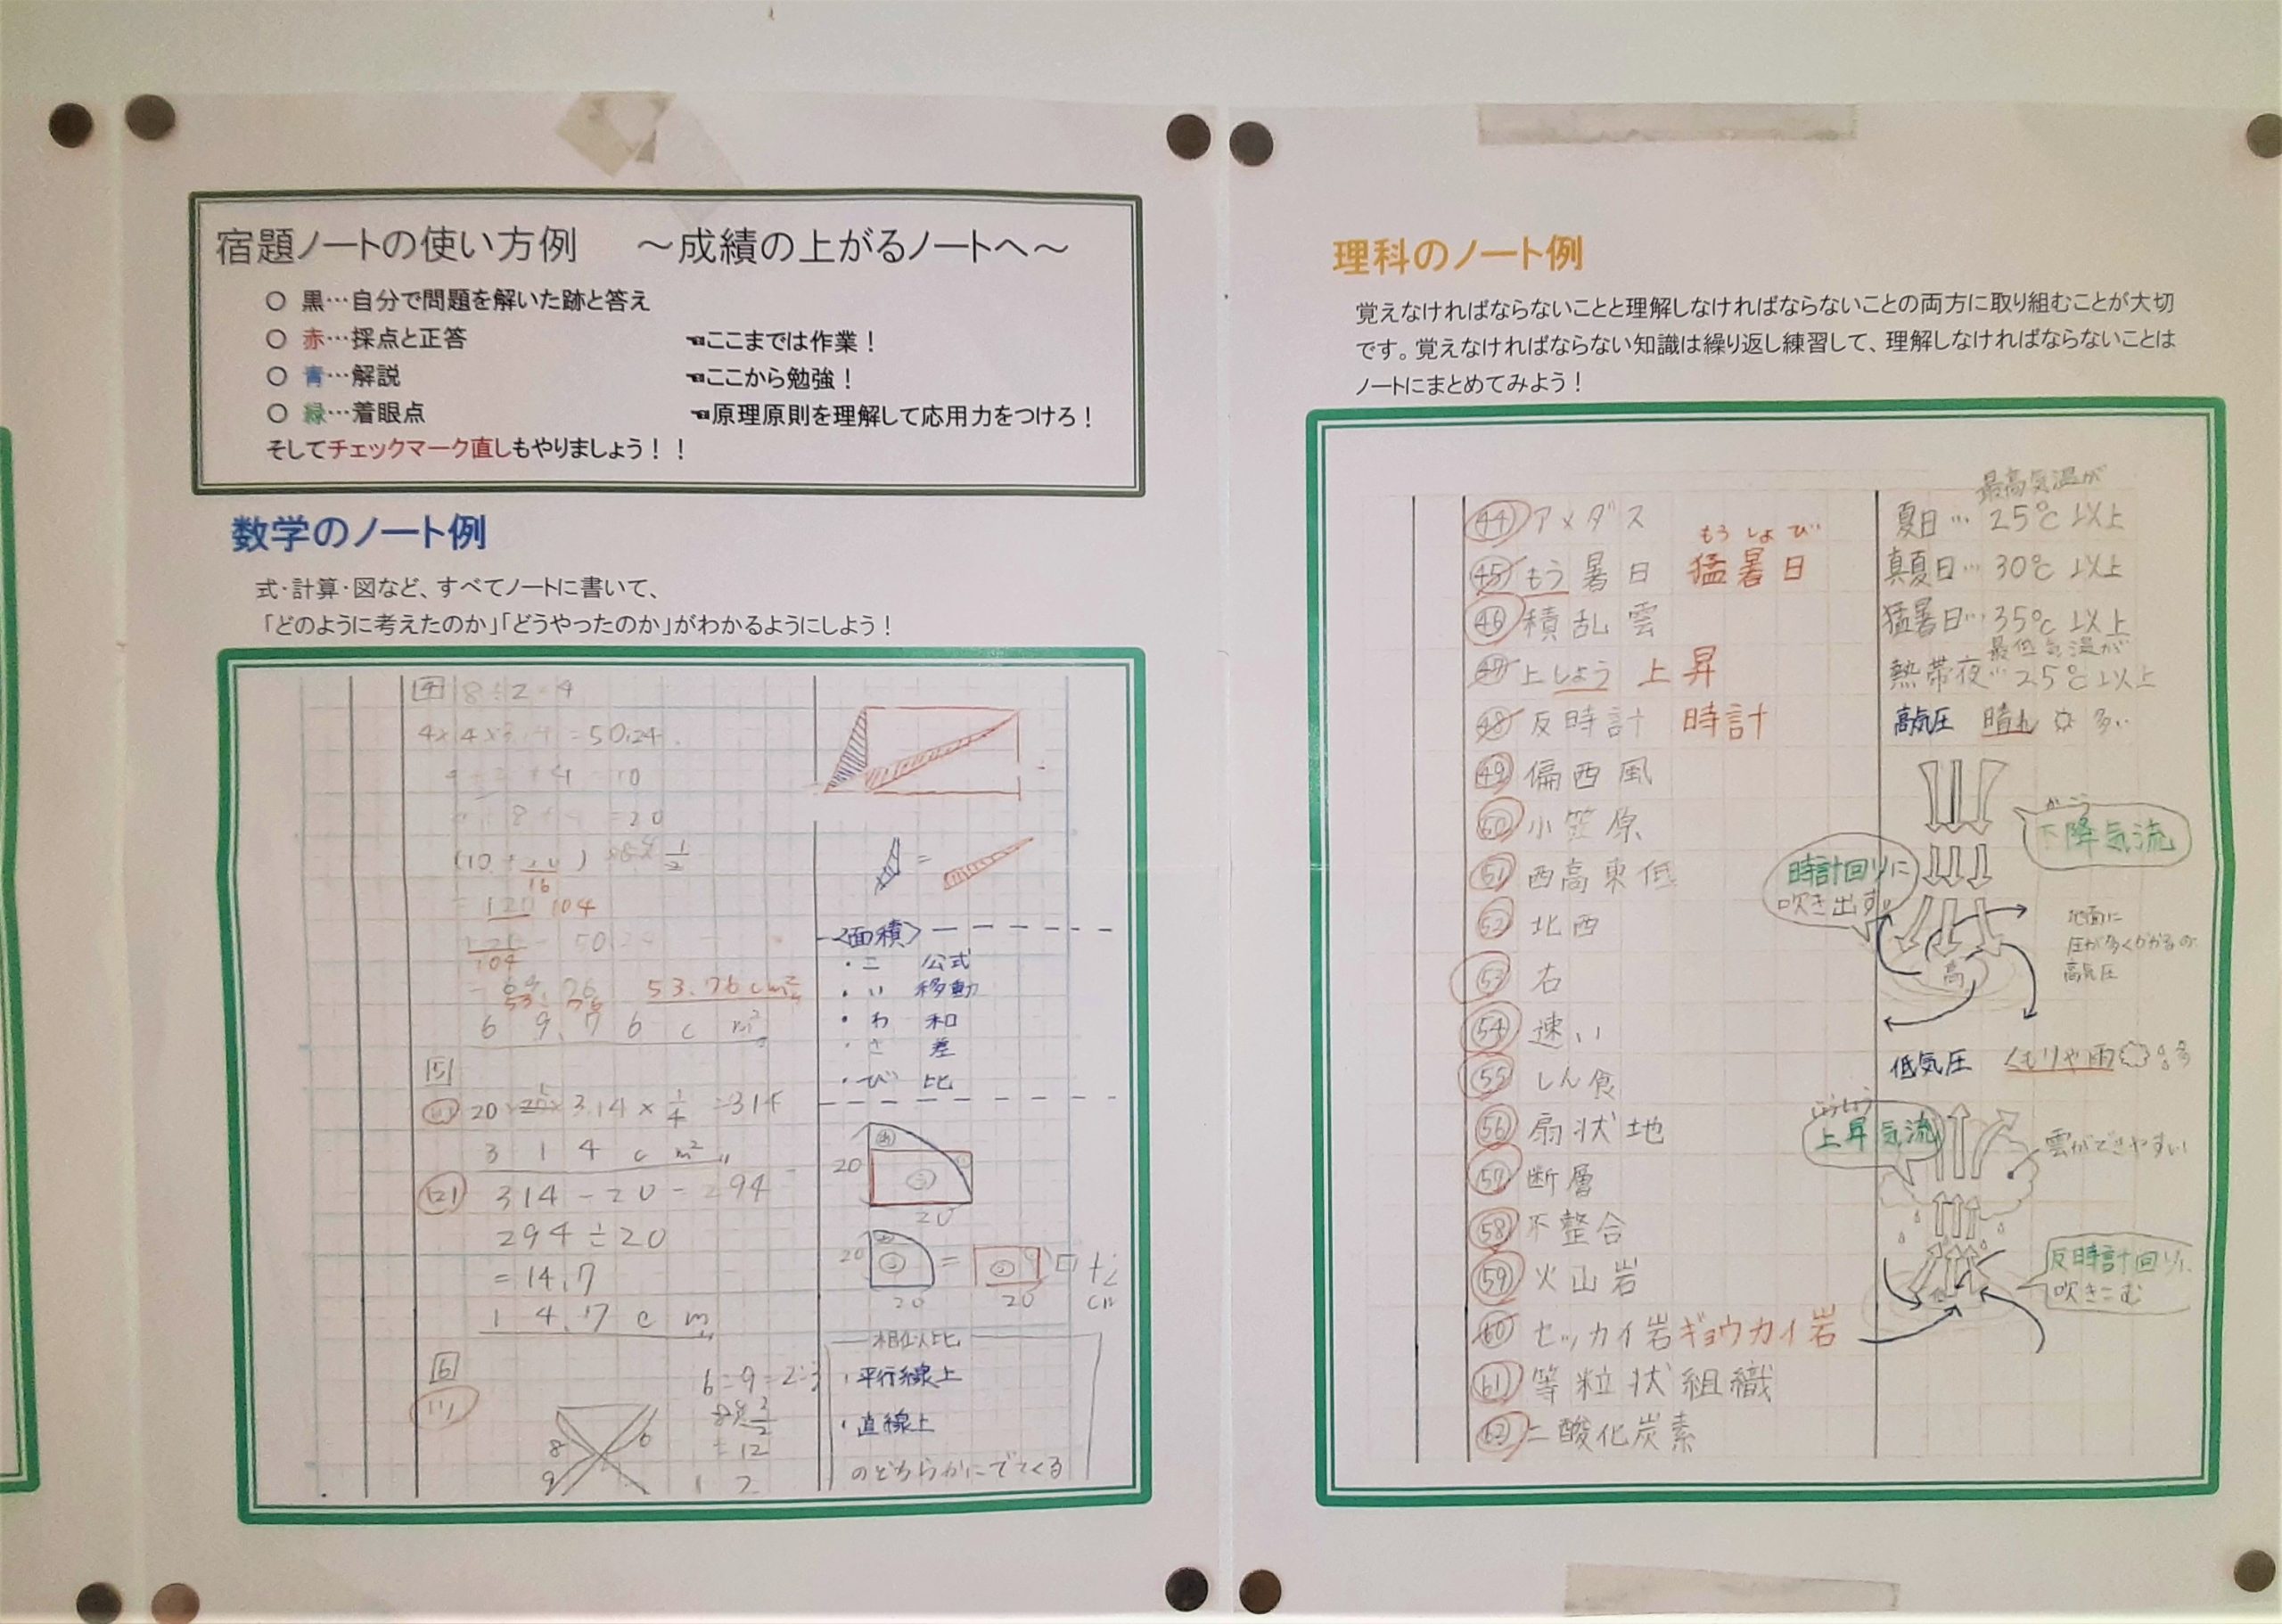 宿題ノートの使い方例　～成績の上がるノートへ～
○ 黒…自分で問題を解いた跡と答え
○ 赤…採点と正答　☜ここまでは作業！
○ 青…解説　☜ここから勉強！
○ 緑…着眼点　☜原理原則を理解して応用力をつけろ！
そしてチェックマーク直しもやりましょう！！
数学のノート例
式・計算・図など、すべてノートに書いて、
「どのように考えたのか」「どうやったのか」がわかるようにしよう！
4 8÷2=4
=50.24
10
=20
(10+ ) 1/2
16
104
53.76cm²
69.76cm²
5
(1) 20 3.14×1/4=314
314cm²
(2) 314-20=294
294÷20
=14.7
14.7cm
6
(1)
6:9=2:3
=12
12
8
6
9
=
〈面積〉
・こ 公式
・い 移動
・わ 和
・さ 差
・び 比
20
20
20
=
20
20
相似比
・平行線上
・直線上
のどちらかにでてくる
理科のノート例
覚えなければならないことと理解しなければならないことの両方に取り組むことが大切
です。覚えなければならない知識は繰り返し練習して、理解しなければならないことは
ノートにまとめてみよう！
44 アメダス
もうしょび
45 もう暑日 猛暑日
46 積乱雲
47 上しょう 上昇
48 反時計 時計
49 偏西風
50 小笠原
51 西高東低
52 北西
53 右
54 速い
55 しん食
56 扇状地
57 断層
58 不整合
59 火山岩
60 セッカイ岩 ギョウカイ岩
61 等粒状組織
62 二酸化炭素
最高気温が
夏日…25℃以上
真夏日…30℃以上
猛暑日…35℃以上
最低気温が
熱帯夜…25℃以上
高気圧 晴れ 多い
かこう
下降気流
時計回りに
吹き出す。
高
地面に
圧が多くかかるの
高気圧
低気圧 くもりや雨
じょうしょう
上昇気流
雲ができやすい
反時計回りに
吹きこむ